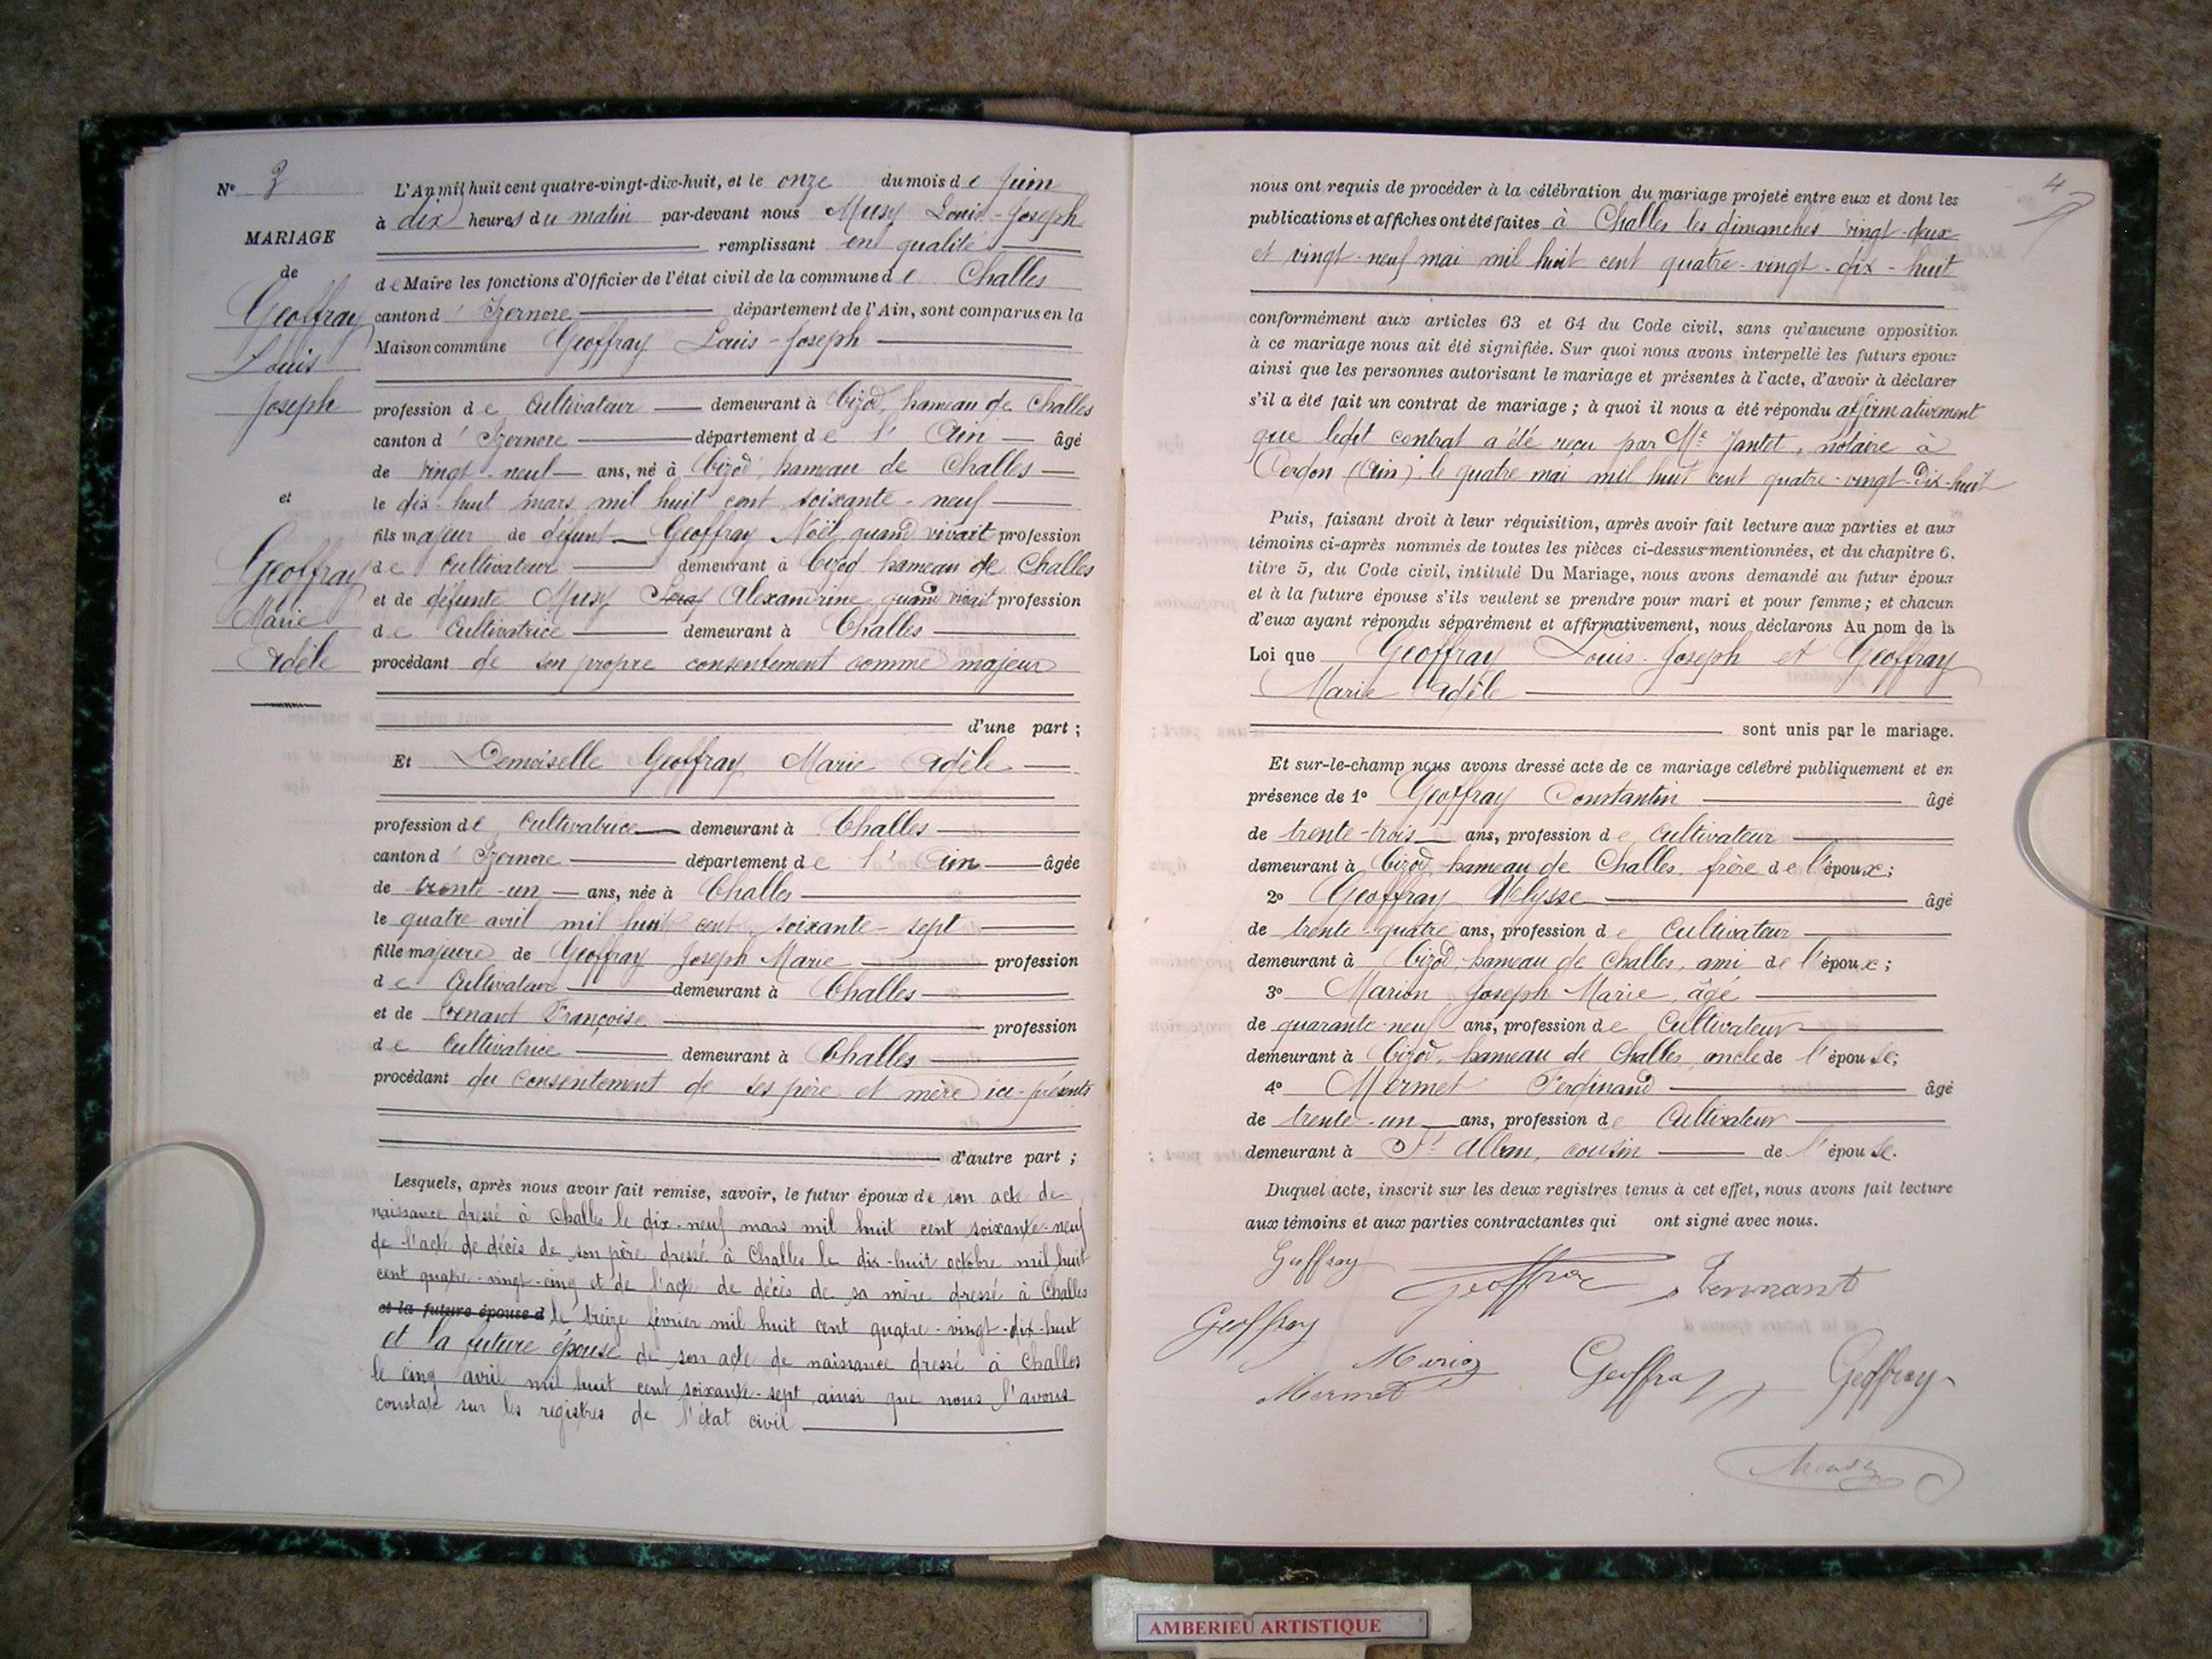 N° 3
MARIAGE
de
Geoffray
Louis
Joseph
et
Geoffray
Marie
Adèle
L'An mil huit cent quatre-vingt-dix-huit, et le onze du mois de Juin
à dix heures du matin par-devant nous Musy Louis-Joseph
remplissant en qualité
de Maire les fonctions d'Officier de l'état civil de la commune de Challes
canton d'Izernore département de l'Ain, sont comparus en la
Maison commune Geoffray Louis-Joseph
profession de Cultivateur demeurant à Cizod, hameau de Challes
canton d'Izernore département de l'Ain âgé
de vingt-neuf ans, né à Cizod, hameau de Challes
le dix-huit mars mil huit cent soixante-neuf
fils majeur de défunt Geoffray Noël, quand vivait profession
de Cultivateur demeurant à Cizod hameau de Challes
et de défunte Musy Alexandrine quand vivait profession
de Cultivatrice demeurant à Challes
procédant de son propre consentement comme majeur
d'une part ;
Et Demoiselle Geoffray Marie Adèle
profession de Cultivatrice demeurant à Challes
canton d'Izernore département de l'Ain âgée
de trente-un ans, née à Challes
le quatre avril mil huit cent soixante-sept
fille majeure de Geoffray Joseph Marie profession
de Cultivateur demeurant à Challes
et de Françoise profession
de Cultivatrice demeurant à Challes
procédant du consentement de ses père et mère ici-présents
d'autre part ;
Lesquels, après nous avoir fait remise, savoir, le futur époux de son acte de
naissance dressé à Challes le dix-neuf mars mil huit cent soixante-neuf
de l'acte de décès de son père dressé à Challes le dix-huit octobre mil huit
cent quatre-vingt-cinq et de l'acte de décès de sa mère dressé à Challes
et la future épouse d le treize février mil huit cent quatre-vingt-dix-huit
et la future épouse de son acte de naissance dressé à Challes
le cinq avril mil huit cent soixante-sept ainsi que nous l'avons
constaté sur les registres de l'état civil
4
nous ont requis de procéder à la célébration du mariage projeté entre eux et dont les
publications et affiches ont été faites à Challes les dimanches vingt-deux
et vingt-neuf mai mil huit cent quatre-vingt-dix-huit
conformément aux articles 63 et 64 du Code civil, sans qu'aucune opposition
à ce mariage nous ait été signifiée. Sur quoi nous avons interpellé les futurs époux
ainsi que les personnes autorisant le mariage et présentes à l'acte, d'avoir à déclarer
s'il a été fait un contrat de mariage ; à quoi il nous a été répondu affirmativement
que ledit contrat a été reçu par Me Jantet, notaire à
Cerdon (Ain) le quatre mai mil huit cent quatre-vingt-dix-huit
Puis, faisant droit à leur réquisition, après avoir fait lecture aux parties et aux
témoins ci-après nommés de toutes les pièces ci-dessus mentionnées, et du chapitre 6.
titre 5, du Code civil, intitulé Du Mariage, nous avons demandé au futur époux
et à la future épouse s'ils veulent se prendre pour mari et pour femme ; et chacun
d'eux ayant répondu séparément et affirmativement, nous déclarons Au nom de la
Loi que Geoffray Louis-Joseph et Geoffray
Marie Adèle
sont unis par le mariage.
Et sur-le-champ nous avons dressé acte de ce mariage célébré publiquement et en
présence de 1° Geoffray Constantin âgé
de trente-trois ans, profession de Cultivateur
demeurant à Cizod hameau de Challes, frère de l'époux ;
2° Geoffray Ulysse âgé
de trente-quatre ans, profession de Cultivateur
demeurant à Cizod, hameau de Challes, ami de l'époux ;
3° Marion Joseph Marie, âgé
de quarante-neuf ans, profession de Cultivateur
demeurant à Cizod, hameau de Challes, oncle de l'épouse ;
4° Mermet Ferdinand âgé
de trente-un ans, profession de Cultivateur
demeurant à St Alban, cousin de l'épouse.
Duquel acte, inscrit sur les deux registres tenus à cet effet, nous avons fait lecture
aux témoins et aux parties contractantes qui ont signé avec nous.
Geoffray
Geoffray
Geoffray
Mermet
Geoffray
Geoffray
Musy
AMBERIEU ARTISTIQUE